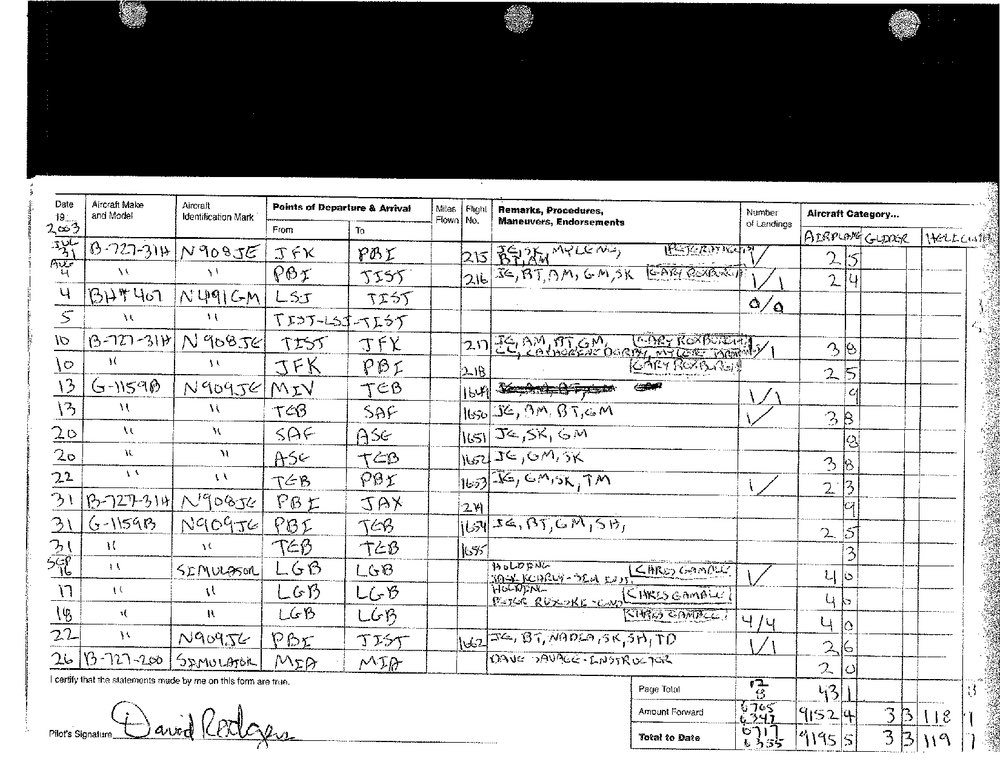 Date Aircraft Make and Model Aircraft Identification Mark Points of Departure & Arrival Miles Flown Flight No. Remarks, Procedures, Maneuvers, Endorsements Number of Landings Aircraft Category...
19 2003 From To AIRPLANE GLIDER
JUL 31 B-727-31H N908JE JFK PBI 215 JE, SK, 1/ 2 5
AUG 4 " " PBI TIST 216 JE, BT, AM, GM, SK GARY ROXBURGH 1/1 2 4
4 407 N491GM LSJ TIST 0/0
5 " " TIST-LSJ-TIST
10 B-727-31H N908JE TIST JFK 217 JE, AM, BT, GM, GARY ROXBURGH /1 3 8
10 " " JFK PBI 218 GARY ROXBURGH 2 5
13 G-1159B N909JE MIV TEB 1649 1/1 9
13 " " TEB SAF 1650 JE, AM, BT, GM 1/ 3 8
20 " " SAF ASE 1651 JE, SK, GM 8
20 " " ASE TEB 1652 JE, GM, SK 3 8
22 " " TEB PBI 1653 JE, GM, SK, TM 1/ 2 3
31 B-727-31H N908JE PBI JAX 219 9
31 G-1159B N909JE PBI TEB 1654 JE, BT, GM, 2 5
31 " " TEB TEB 1655 3
SEP 16 " SIMULATOR LGB LGB HOLDING CHRIS GAMBLE 1/ 4 0
17 " " LGB LGB HOLDING CHRIS GAMBLE 4 0
18 " " LGB LGB CHRIS GAMBLE 4/4 4 0
22 " N909JE PBI TIST 1662 JE, BT, NADIA, SK, SH, TD 1/1 2 6
26 B-727-200 SIMULATOR MIA MIA DAVE SAVAGE-INSTRUCTOR 2 0
I certify that the statements made by me on this form are true.
Page Total 12 8 43 1
Amount Forward 6705 6347 9152 4 3 3 118 1
Pilot's Signature David Rodgers
Total to Date 6717 6355 9195 5 3 3 119